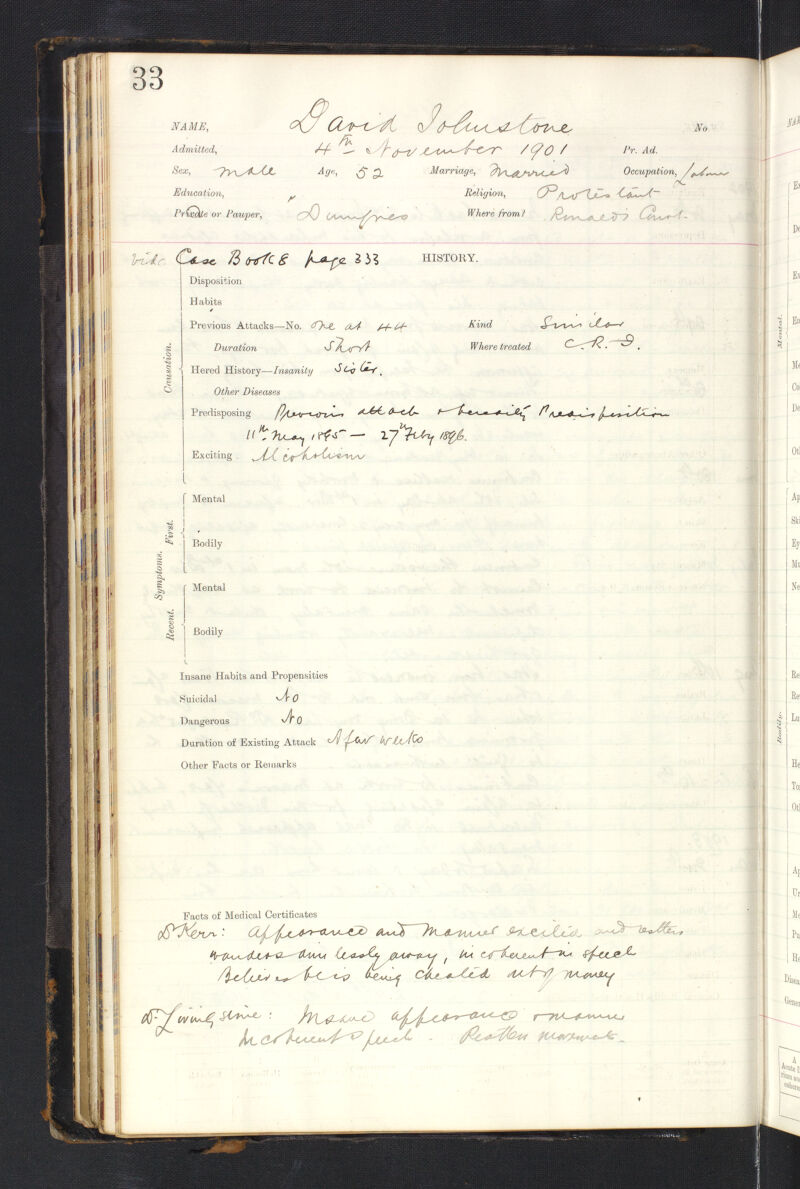 33
NAME, David Johnstone No
Admitted, 4th November 1901 Pr. Ad.
Sex, male Age, 52 Marriage, Married Occupation, Labourer
Education, " Religion, Protestant
Private or Pauper, Dumfries Where from? Ronald's Court
vide Case Book 8 page 333 HISTORY.
Disposition
Habits
Previous Attacks—No. one at 44 Kind Similar
Duration Short Where treated C. R. I.
Causation.
Hered History—Insanity Sister.
Other Diseases
Predisposing Previous attack & heredity Predisposition
11th May 1895 — 27th Feby 1896.
Exciting Alcoholism
Symptoms. First.
Mental
Bodily
Recent.
Mental
Bodily
Insane Habits and Propensities
Suicidal No
Dangerous No
Duration of Existing Attack A few weeks
Other Facts or Remarks
Facts of Medical Certificates
Dr Kerr: Appearance and manner excited and restless
wanders aimlessly away, incoherent in speech
Believes he is being cheated out of money
Dr. Livingstone: Insane appearance & manner
Incoherent speech. Restless